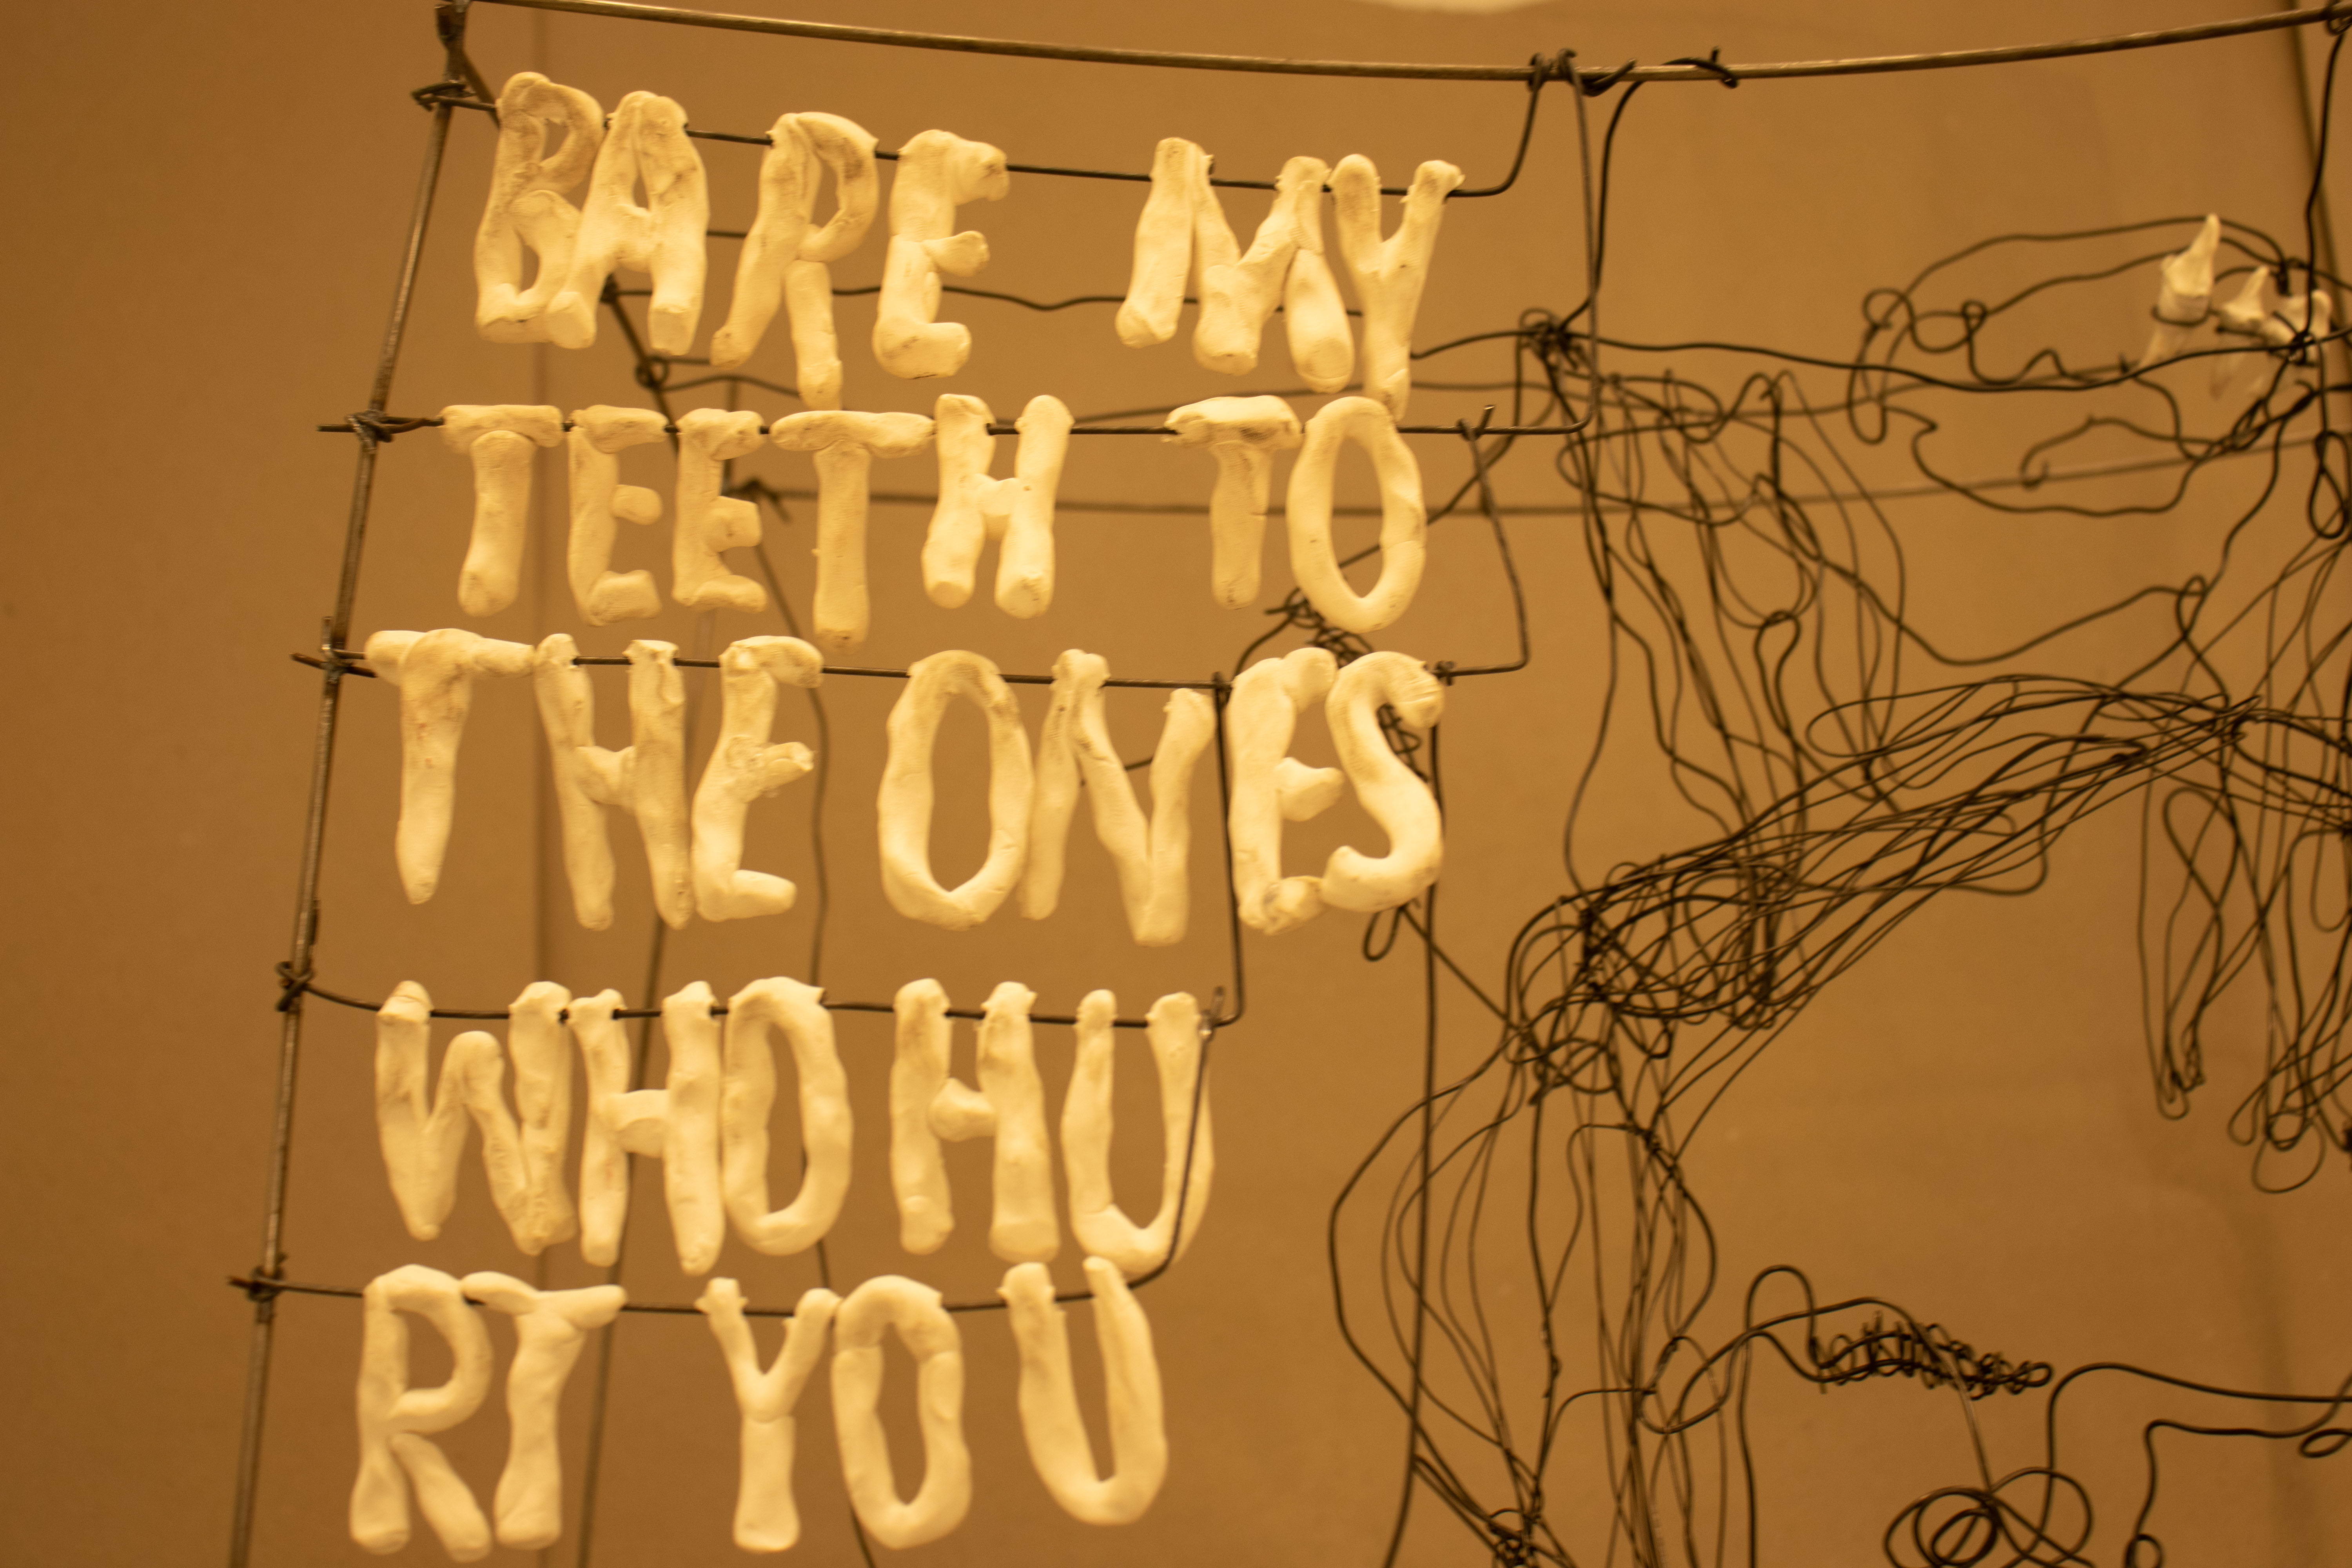 BARE MY
TEETH TO
THE ONES
WHO HU
RT YOU